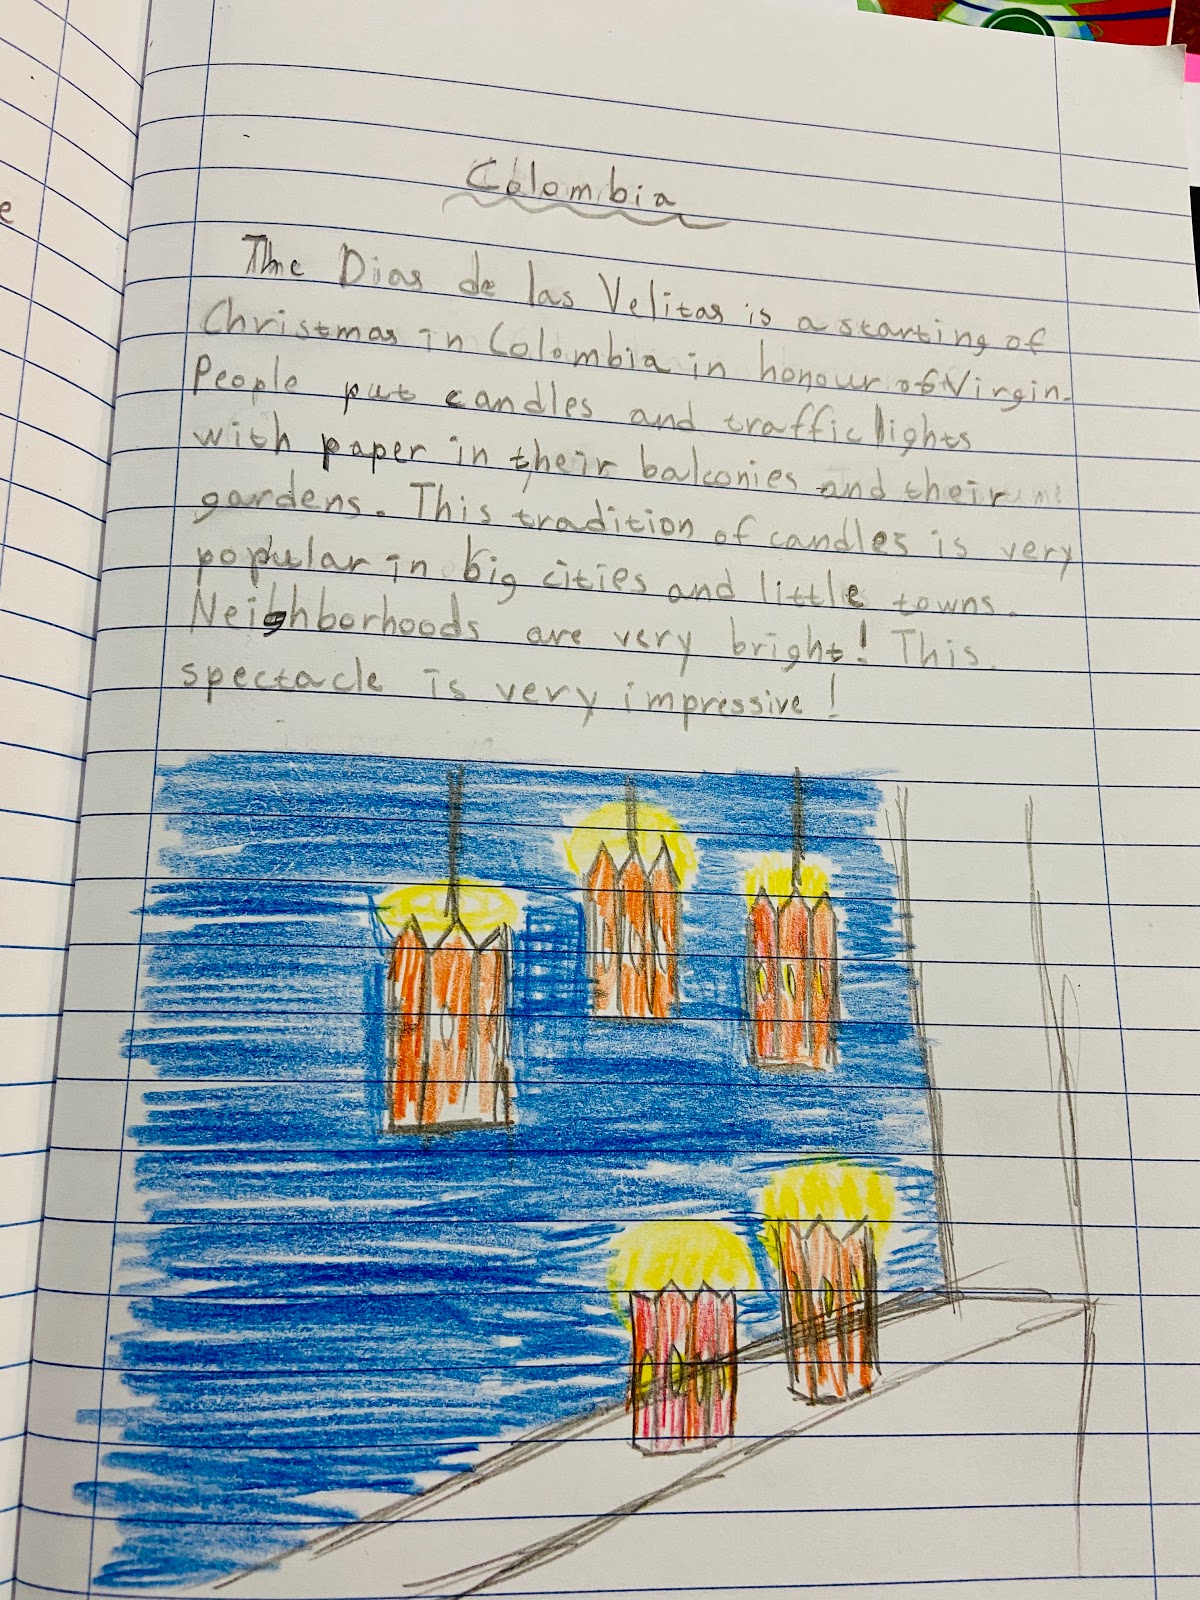 Colombia
The Dias de las Velitas is a starting of
Christmas in Colombia in honour of Virgin.
People put candles and traffic lights
with paper in their balconies and their
gardens. This tradition of candles is very
popular in big cities and little towns.
Neighborhoods are very bright! This
spectacle is very impressive!
e